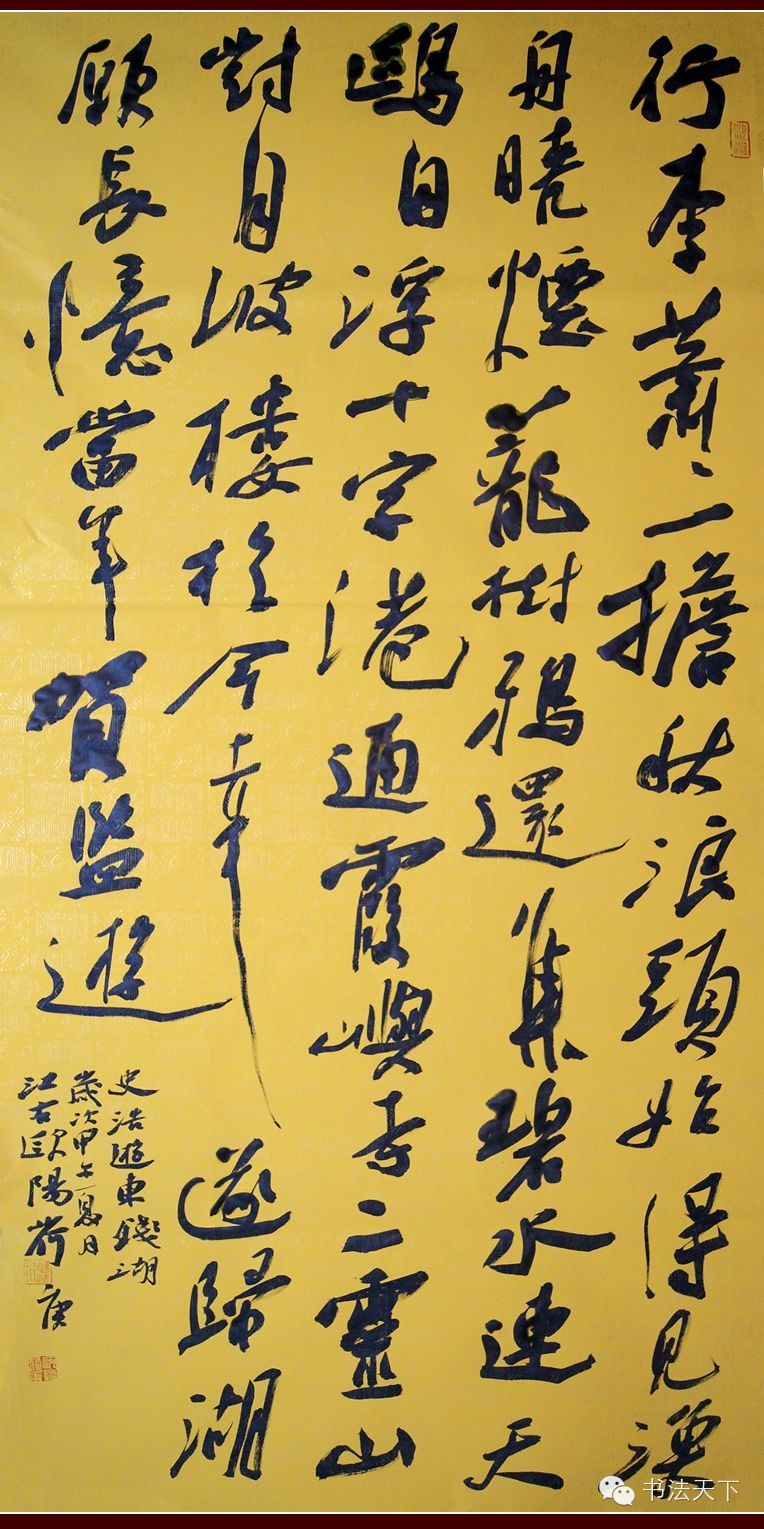 行李蕭〻一擔秋浪頭始得見漁
舟曉煙蘢樹鴉還集碧水連天
鷗自浮十字港通霞嶼寺二靈山
對月波樓於今幸遂歸湖
願長憶當年賀監遊
史浩遊東錢湖
歲次甲午夏月
江右歐陽荷庚
书法天下